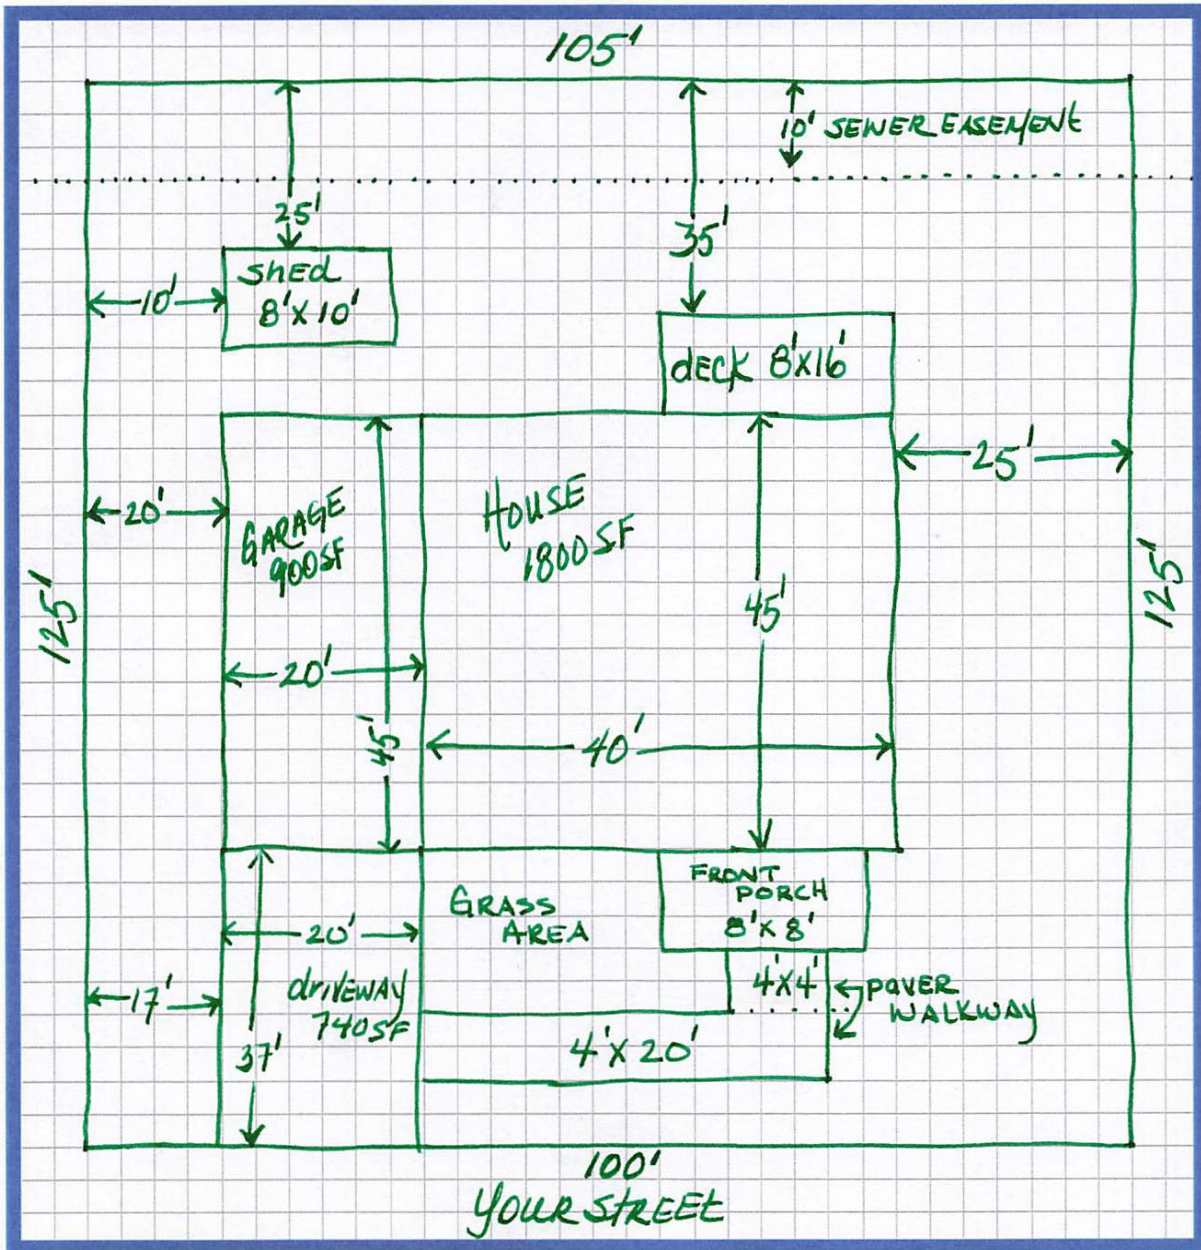 105'
10' SEWER EASEMENT
25'
35'
shed
8'X10'
10'
deck 8'X16'
25'
20'
GARAGE
900SF
HOUSE
1800SF
125'
45'
125'
20'
45'
40'
FRONT
PORCH
8'X8'
GRASS
AREA
20'
17'
driveway
740SF
4'X4'
paver
WALKWAY
37'
4'X20'
100'
YOUR STREET